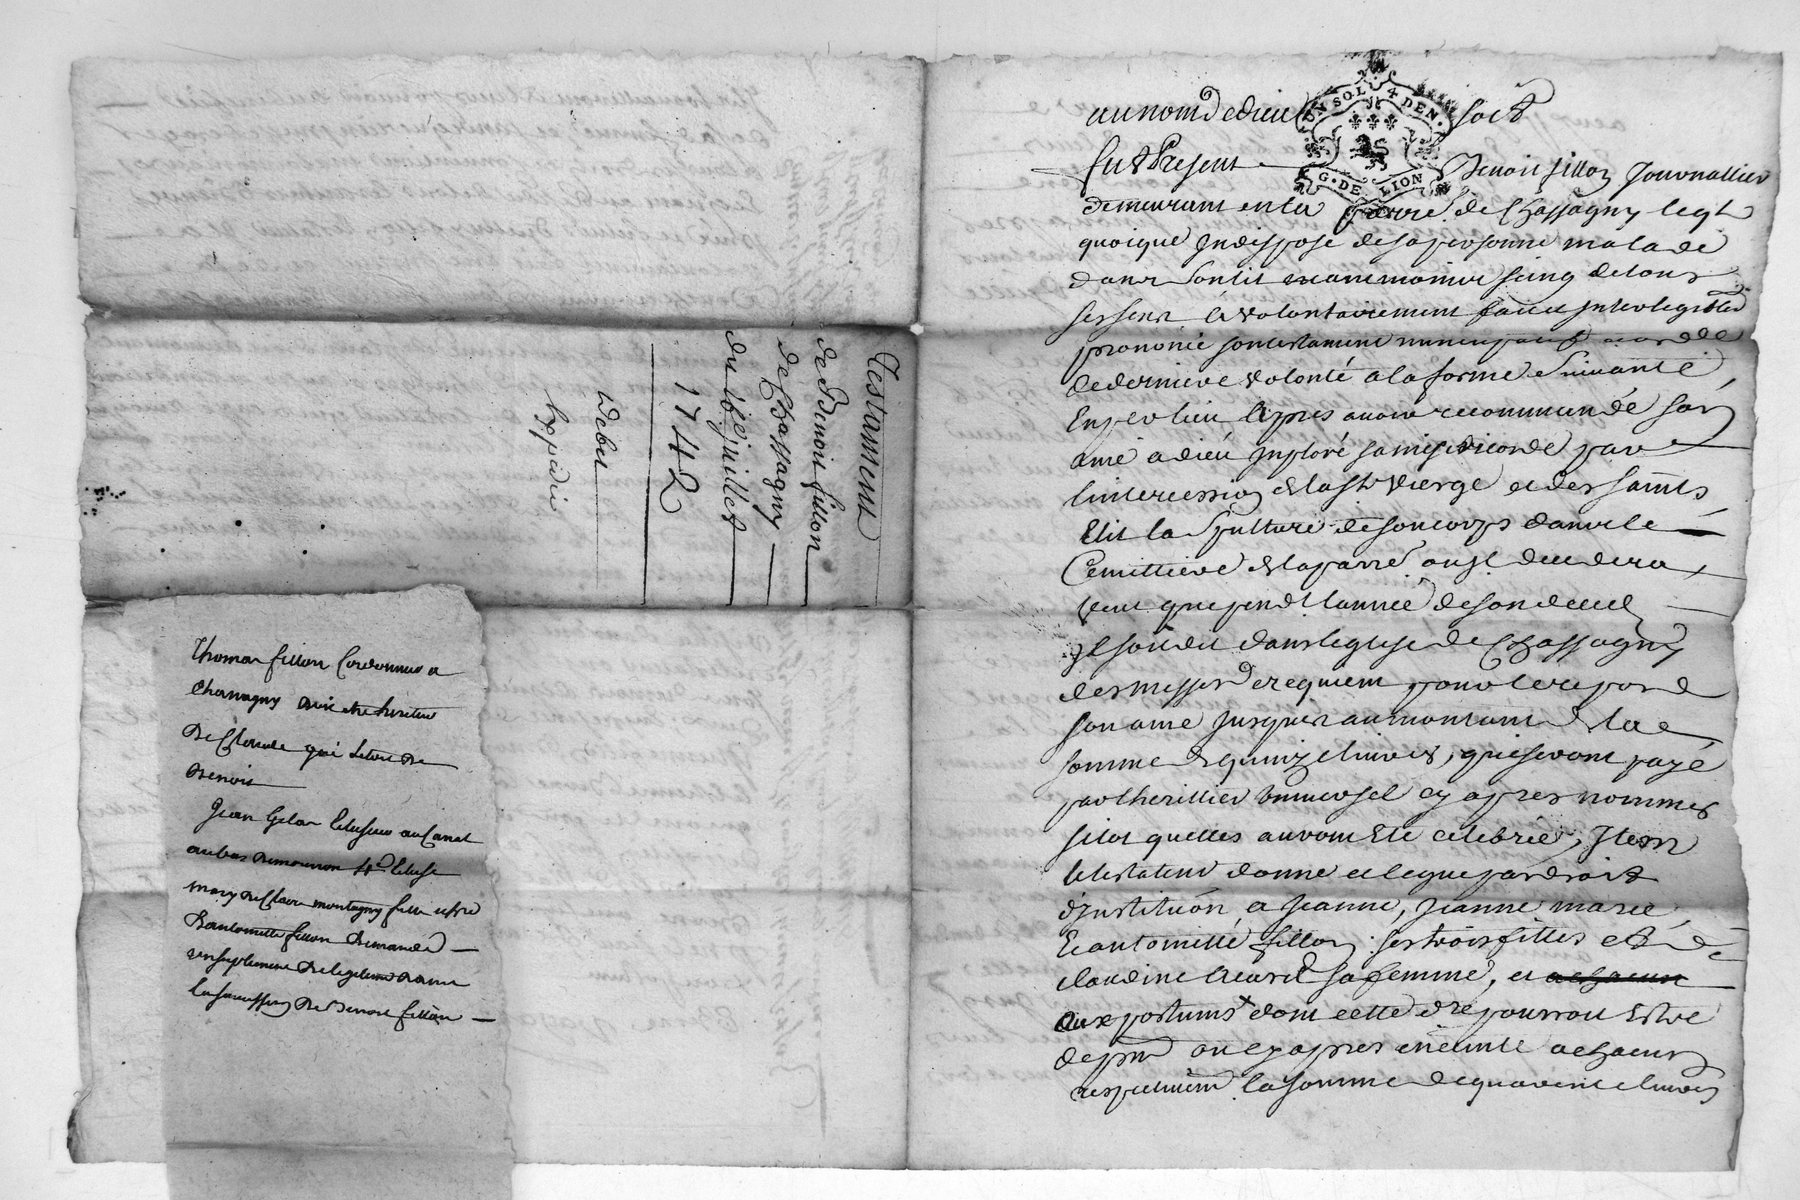 Testament
de Benoit fillon
de Chassagny
du 16e juillet
1742
Debet
Expedié
Thomas fillon Cordonnier a
Chassagny doit etre heritier
De Claude qui letoit de
Benoit
Jean Gelas
au bas
mary De Claire montagny fille
D'antoinette fillon Demande
un suplement De legitime dans
la succession De Benoit fillon
au nom de dieu soit
UN SOL 4 DEN.
G. DE LION
fut Present Benoit fillon Journallier
demeurant en la parre. de Chassagny leql
quoique Indisposé de sa personne malade
dans son lit neanmoins sain de tous
ses sens a volontairement fait et Intelegiblemt
prononcé son testament nuncupatif
de derniere volonté a la forme suivante
En per lieu apres avoir recommendé son
ame a dieu Inploré sa misericorde par
lintercession de la ste vierge et des saints
Elit la sepulture de son corps dans le
Cemittiere de la parre ou Il decedera,
veut que pendt lannée de son deced
Il soit dit dans leglise de Chassagny
des messes de requiem pour le repos de
son ame Jusques au montant de la
somme de quinze livres, qui seront payé
par lheritier universel cy apres nommer
sitot quelles auront eté celebrée, Item
le testateur donne et legue par droit
d'Institution a Jeanne, Jeanne marie,
Et antoinette fillon ses trois filles et de
claudine sa femme, et
aux postums dont cette dre pourroit Estre
de pnt ou cy apres enceinte a chacun
respectivemt la somme de quarente livres